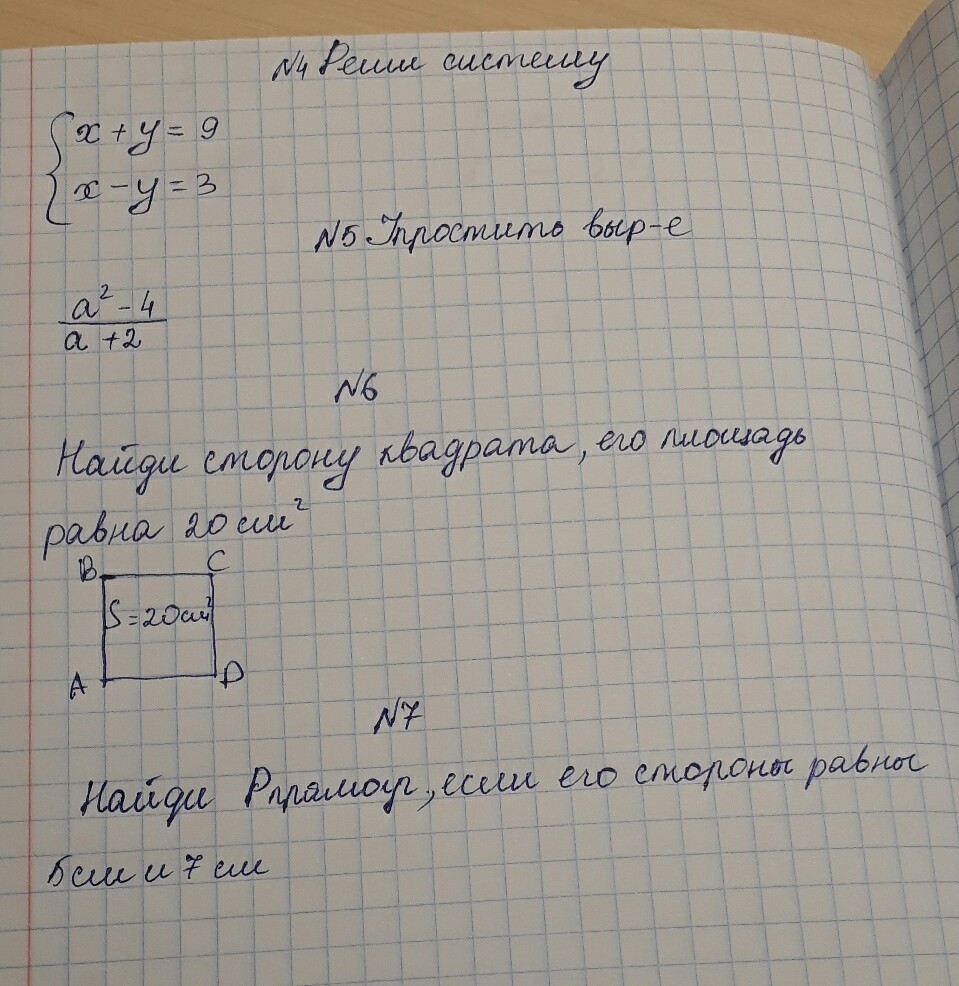 N4 Реши систему
x + y = 9
x - y = 3
N5 Упростить выр-е
a² - 4
a + 2
N6
Найди сторону квадрата, его площадь
равна 20 см²
B C
S = 20 см²
A D
N7
Найди Pпрямоуг, если его стороны равны
5 см и 7 см